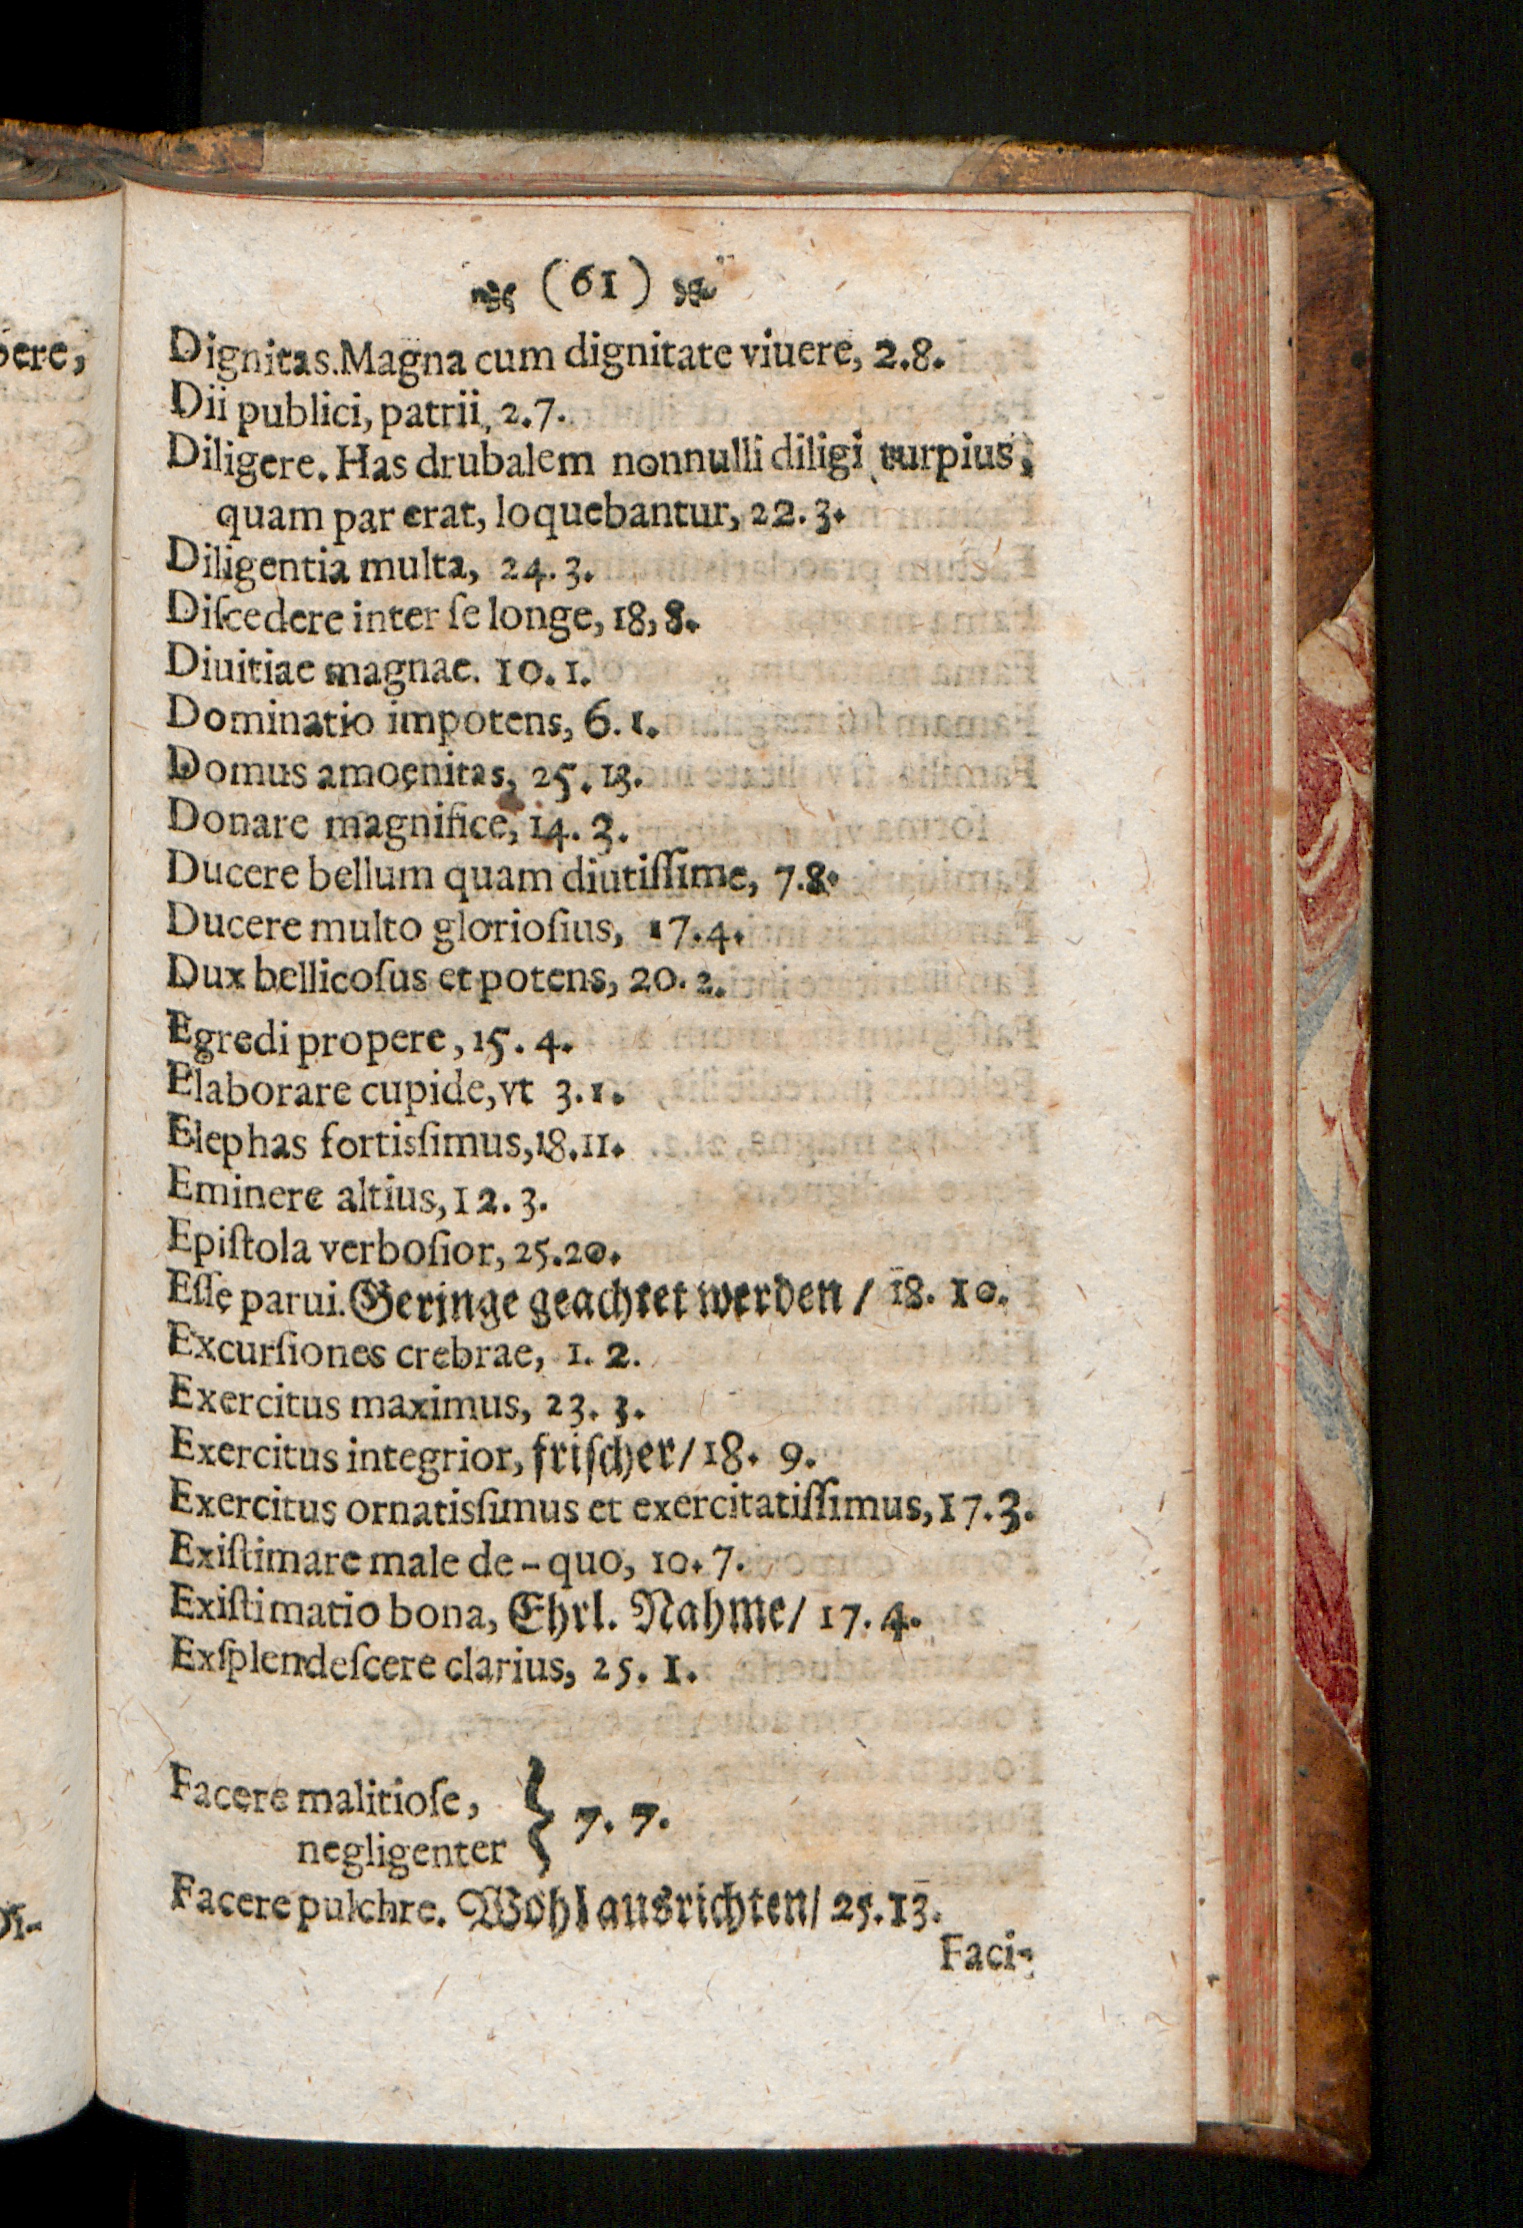 (61)
Dignitas. Magna cum dignitate viuere, 2.8.
Dii publici, patrii, 2.7.
Diligere. Has drubalem nonnulli diligi turpius,
quam par erat, loquebantur, 22. 3.
Diligentia multa, 24. 3.
Diſcedere inter ſe longe, 18, 8.
Diuitiae magnae. 10. 1.
Dominatio impotens, 6. 1.
Domus amoenitas, 25. 13.
Donare magnifice, 14. 3.
Ducere bellum quam diutiſſime, 7.8.
Ducere multo glorioſius, 17.4.
Dux bellicoſus et potens, 20. 2.
Egredi propere, 15. 4.
Elaborare cupide, vt 3.1.
Elephas fortisſimus, 18.11.
Eminere altius, 12. 3.
Epiſtola verboſior, 25.20.
Eſſe parui. Geringe geachtet werden / 18. 10.
Excurſiones crebrae, 1. 2.
Exercitus maximus, 23. 3.
Exercitus integrior, friſcher / 18. 9.
Exercitus ornatisſimus et exercitatiſſimus, 17.3.
Exiſtimare male de - quo, 10. 7.
Exiſtimatio bona, Ehrl. Nahme / 17. 4.
Exſplendeſcere clarius, 25. 1.
Facere malitioſe, } 7. 7.
negligenter
Facere pulchre. Wohl ausrichten / 25. 13.
Faci-